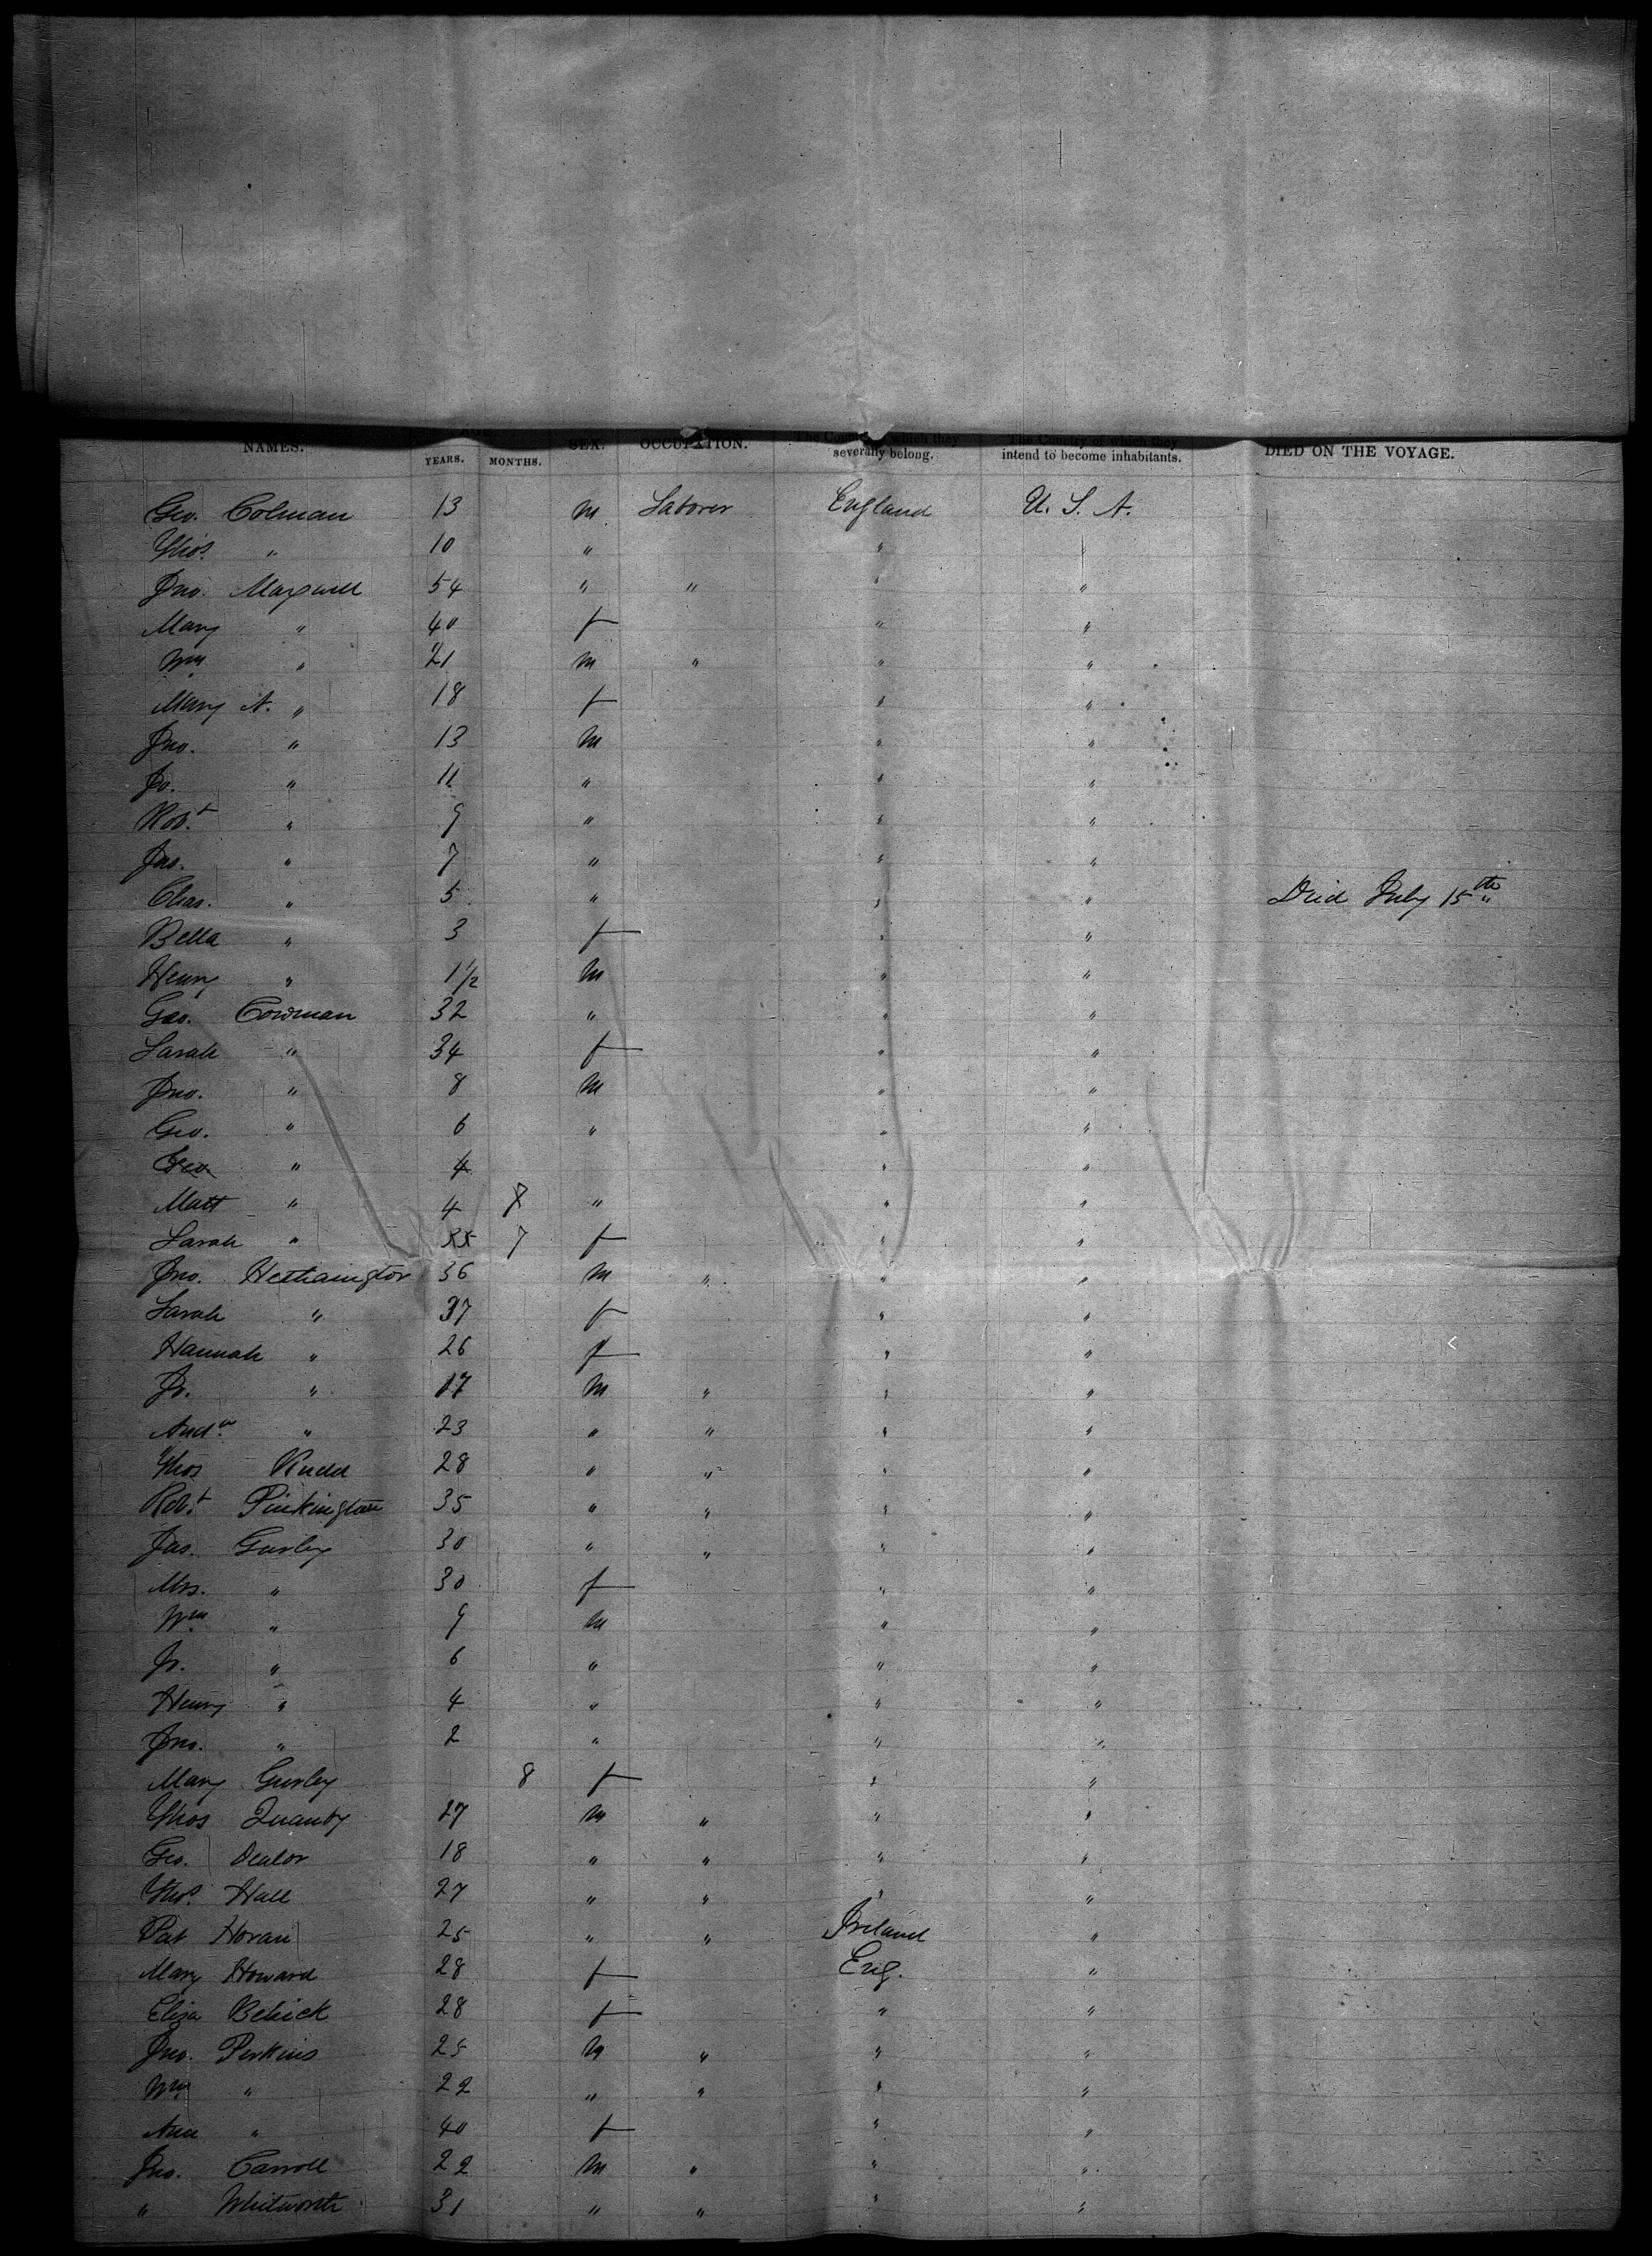 NAMES. YEARS. MONTHS. SEX. OCCUPATION. The Country which they severally belong. The Country of they intend to become inhabitants. DIED ON THE VOYAGE.
Geo. Colman 13 m Laborer England U. S. A.
Thos. " 10 " " "
Jno. Maxwell 54 " " " "
Mary " 40 f " "
Wm. " 21 m " " "
Mary A. " 18 f " "
Jno. " 13 m " "
Jo. " 11 " " "
Robt. " 9 " " "
Jas. " 7 " " "
Chas. " 5 " " " Died July 15th
Bella " 3 f " "
Henry " 1 1/2 m " "
Geo. Cowman 32 " " "
Sarah " 34 f " "
Jno. " 8 m " "
Geo. " 6 " " "
Geo " 4 " "
Matt " 4 " " "
Sarah " 7 f " "
Jno. Hethaington 36 m " " "
Sarah " 37 f " "
Hannah " 26 f " "
Jo. " 17 m " " "
Andw. " 23 " " " "
Thos Rudd 28 " " " "
Robt Pinkington 35 " " " "
Jas. Gurley 30 " " " "
Mrs. " 30 f " "
Wm. " 9 m " "
Jo. " 6 " " "
Henry " 4 " " "
Jno. " 2 " " "
Mary Gurley 8 f " "
Thos Quanby 27 m " " "
Geo. Dealor 18 " " " "
Thos. Hall 27 " " " "
Pat Horan 25 " " Ireland "
Mary Howard 28 f Eng. "
Eliza Behick 28 f " "
Jno. Perkins 25 m " " "
Wm " 22 " " " "
Ann " 40 f " "
Jno. Carroll 22 m " " "
" Whitworth 31 " " " "